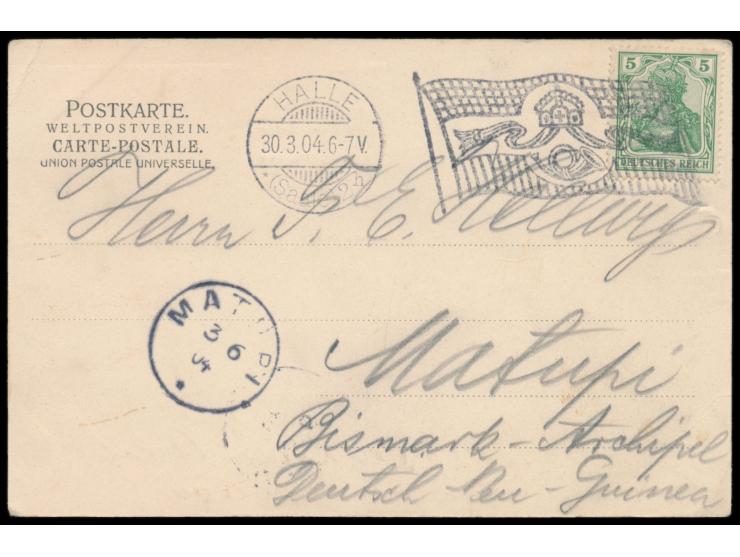 POSTKARTE.
WELTPOSTVEREIN.
CARTE-POSTALE.
UNION POSTALE UNIVERSELLE.
HALLE
30.3.04.6-7V.
5 5
DEUTSCHES REICH
Herrn E. Hellwig
MATUPI
3 6
04
Matupi
Bismark-Archipel
Deutsch Neu-Guinea